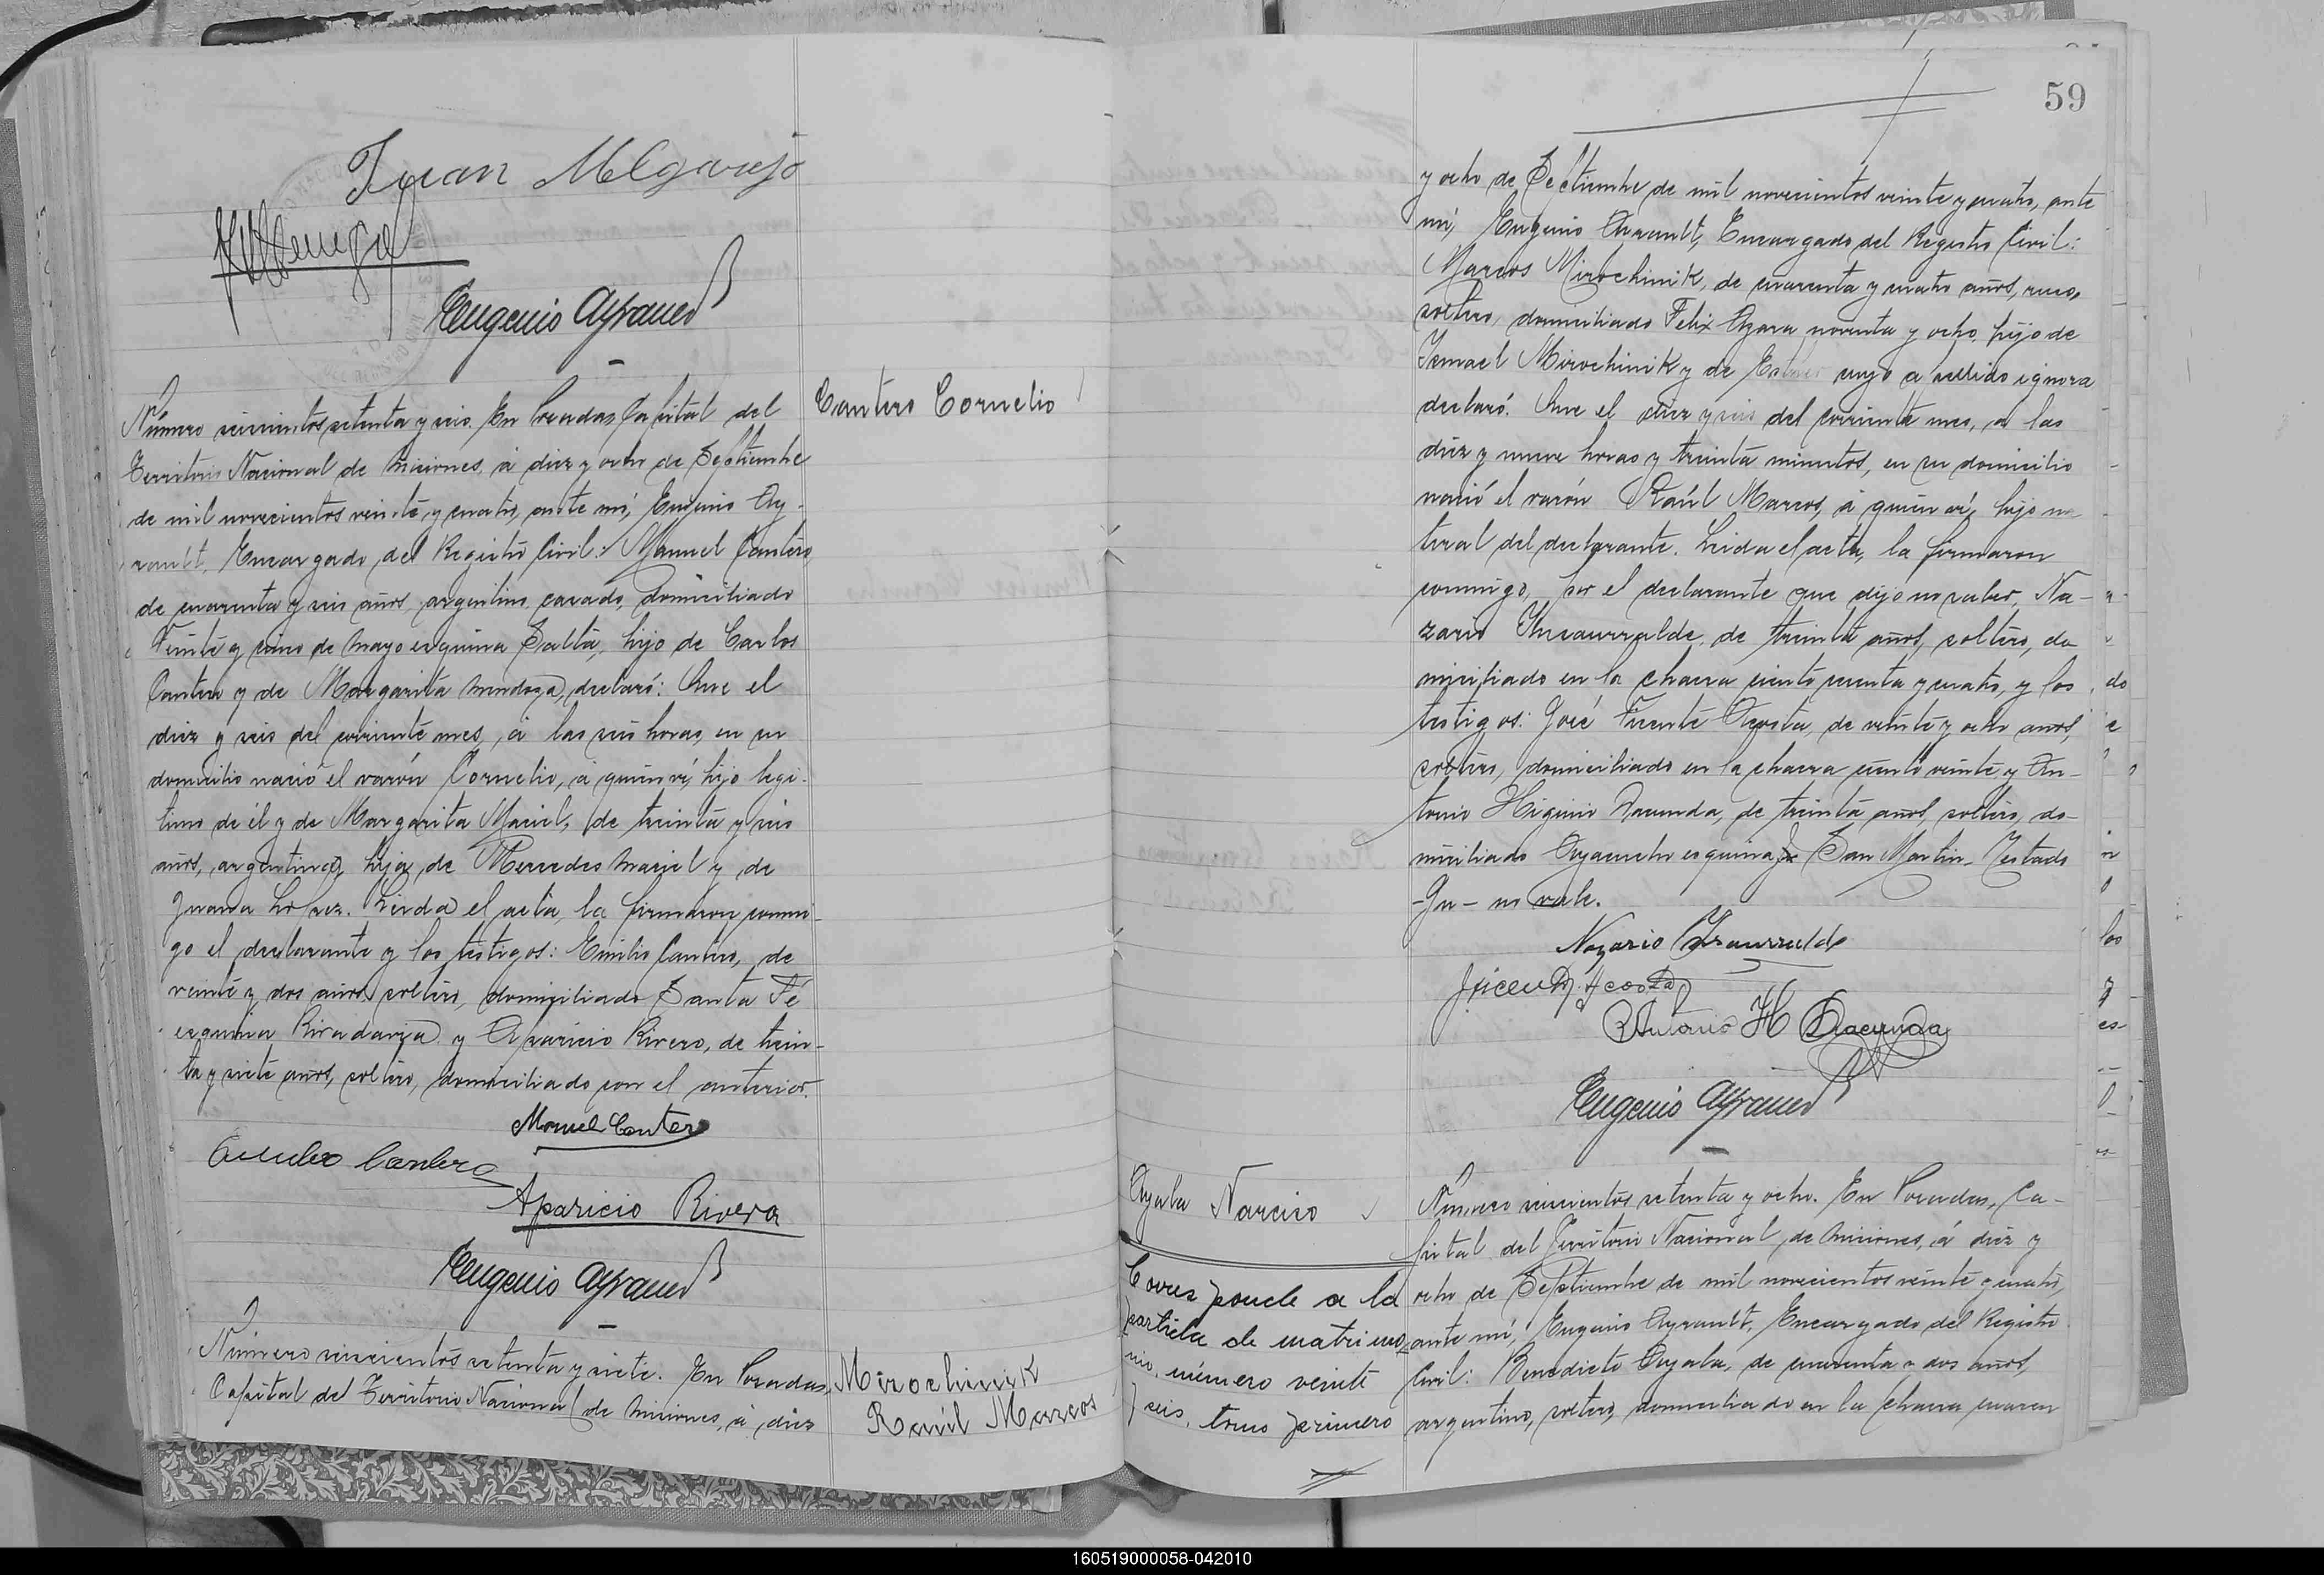 Juan Melgarejo
Eugenio Ayrault
Cantero Cornelio
Número seiscientos setenta y seis. En Posadas, Capital del
Territorio Nacional de Misiones, á diez y ocho de Septiembre
de mil novecientos veinte y cuatro, ante mí, Eugenio Ay-
rault, Encargado del Registro Civil: Manuel Cantero,
de cuarenta y seis años, argentino, casado, domiciliado
Veinte y cinco de Mayo esquina Salta, hijo de Carlos
Cantero y de Margarita Mendoza, declaró: Que el
diez y seis del corriente mes, á las seis horas, en su
domicilio nació el varón Cornelio, á quien ví, hijo legí-
timo de él y de Margarita Maciel, de treinta y seis
años, argentina, hija de Mercedes Maciel y de
Juana Lopez. Leida el acta, la firmaron conmi-
go el declarante y los testigos: Emilio Cantero, de
veinte y dos años, soltero, domiciliado Santa Fé
esquina Rivadavia y Aparicio Rivero, de trein-
ta y siete años, soltero, domiciliado con el anterior.
Manuel Cantero
Cantero
Aparicio Rivero
Eugenio Ayrault
Número seiscientos setenta y siete. En Posadas,
Capital del Territorio Nacional de Misiones, á diez
Mirochinik
Raúl Marcos
59
y ocho de Septiembre de mil novecientos veinte y cuatro, ante
mí, Eugenio Ayrault, Encargado del Registro Civil:
Marcos Mirochinik, de cuarenta y cuatro años, ruso,
soltero, domiciliado Felix Azara noventa y ocho, hijo de
Ismael Mirochinik y de Ester cuyo apellido ignora
declaró: Que el diez y seis del corriente mes, a las
diez y nueve horas y treinta minutos, en su domicilio
nació el varón Raúl Marcos, á quien ví, hijo na
tural del declarante. Leida el acta, la firmaron
conmigo, por el declarante que dijo no saber, Na-
zario Insaurralde, de treinta años, soltero, do
miciliado en la chacra ciento cuarenta y cuatro, y los
testigos: José Vicente Acosta, de veinte y ocho años,
soltero, domiciliado en la chacra ciento veinte y An-
tonio Higinio Dacunda, de treinta años, soltero, do-
miciliado Ayacucho esquina San Martin. Testado
-Ju- no vale.
Nazario Insaurralde
J. Vicente Acosta
Antonio H Dacunda
Eugenio Ayrault
Ayala Narciso
Corresponde a la
partida de matrimo-
nio, número veinte
y seis, tomo primero
Número seiscientos setenta y ocho. En Posadas, Ca-
pital del Territorio Nacional de Misiones, á diez y
ocho de Septiembre de mil novecientos veinte y cuatro,
ante mí, Eugenio Ayrault, Encargado del Registro
Civil: Benedicto Ayala, de cuarenta y dos años,
argentino, soltero, domiciliado en la chacra cuaren
160519000058-042010